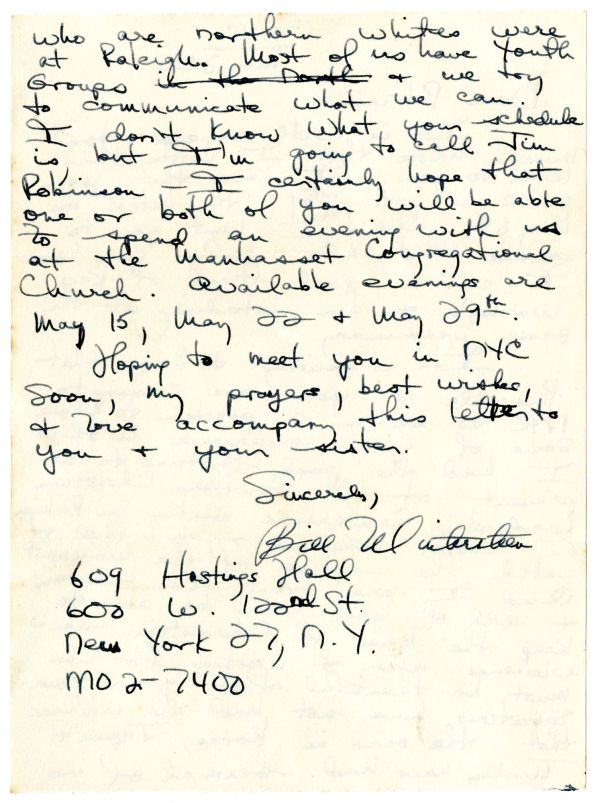 who are northern whites were
at Raleigh. Most of us have Youth
Groups in the north & we try
to communicate what we can.
I don't know what your schedule
is, but I'm going to call Jim
Robinson - I certainly hope that
one or both of you will be able
to spend an evening with us
at the Manhasset Congregational
Church. Available evenings are
May 15, May 22 & May 29th.
Hoping to meet you in NYC
soon, my prayers, best wishes,
& love accompany this letter to
you & your sister.
Sincerely,
Bill
609 Hastings Hall
600 W. 122nd St.
New York 27, N.Y.
MO 2-7400